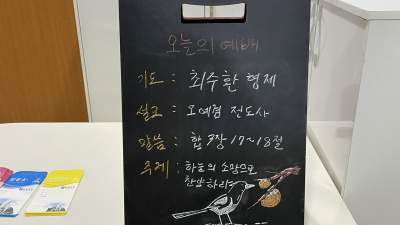 오늘의 예배
기도 : 최수환 형제
설교 : 오예협 전도사
말씀 : 합 3장 17~18절
주제 : 하늘의 소망으로
찬양하리